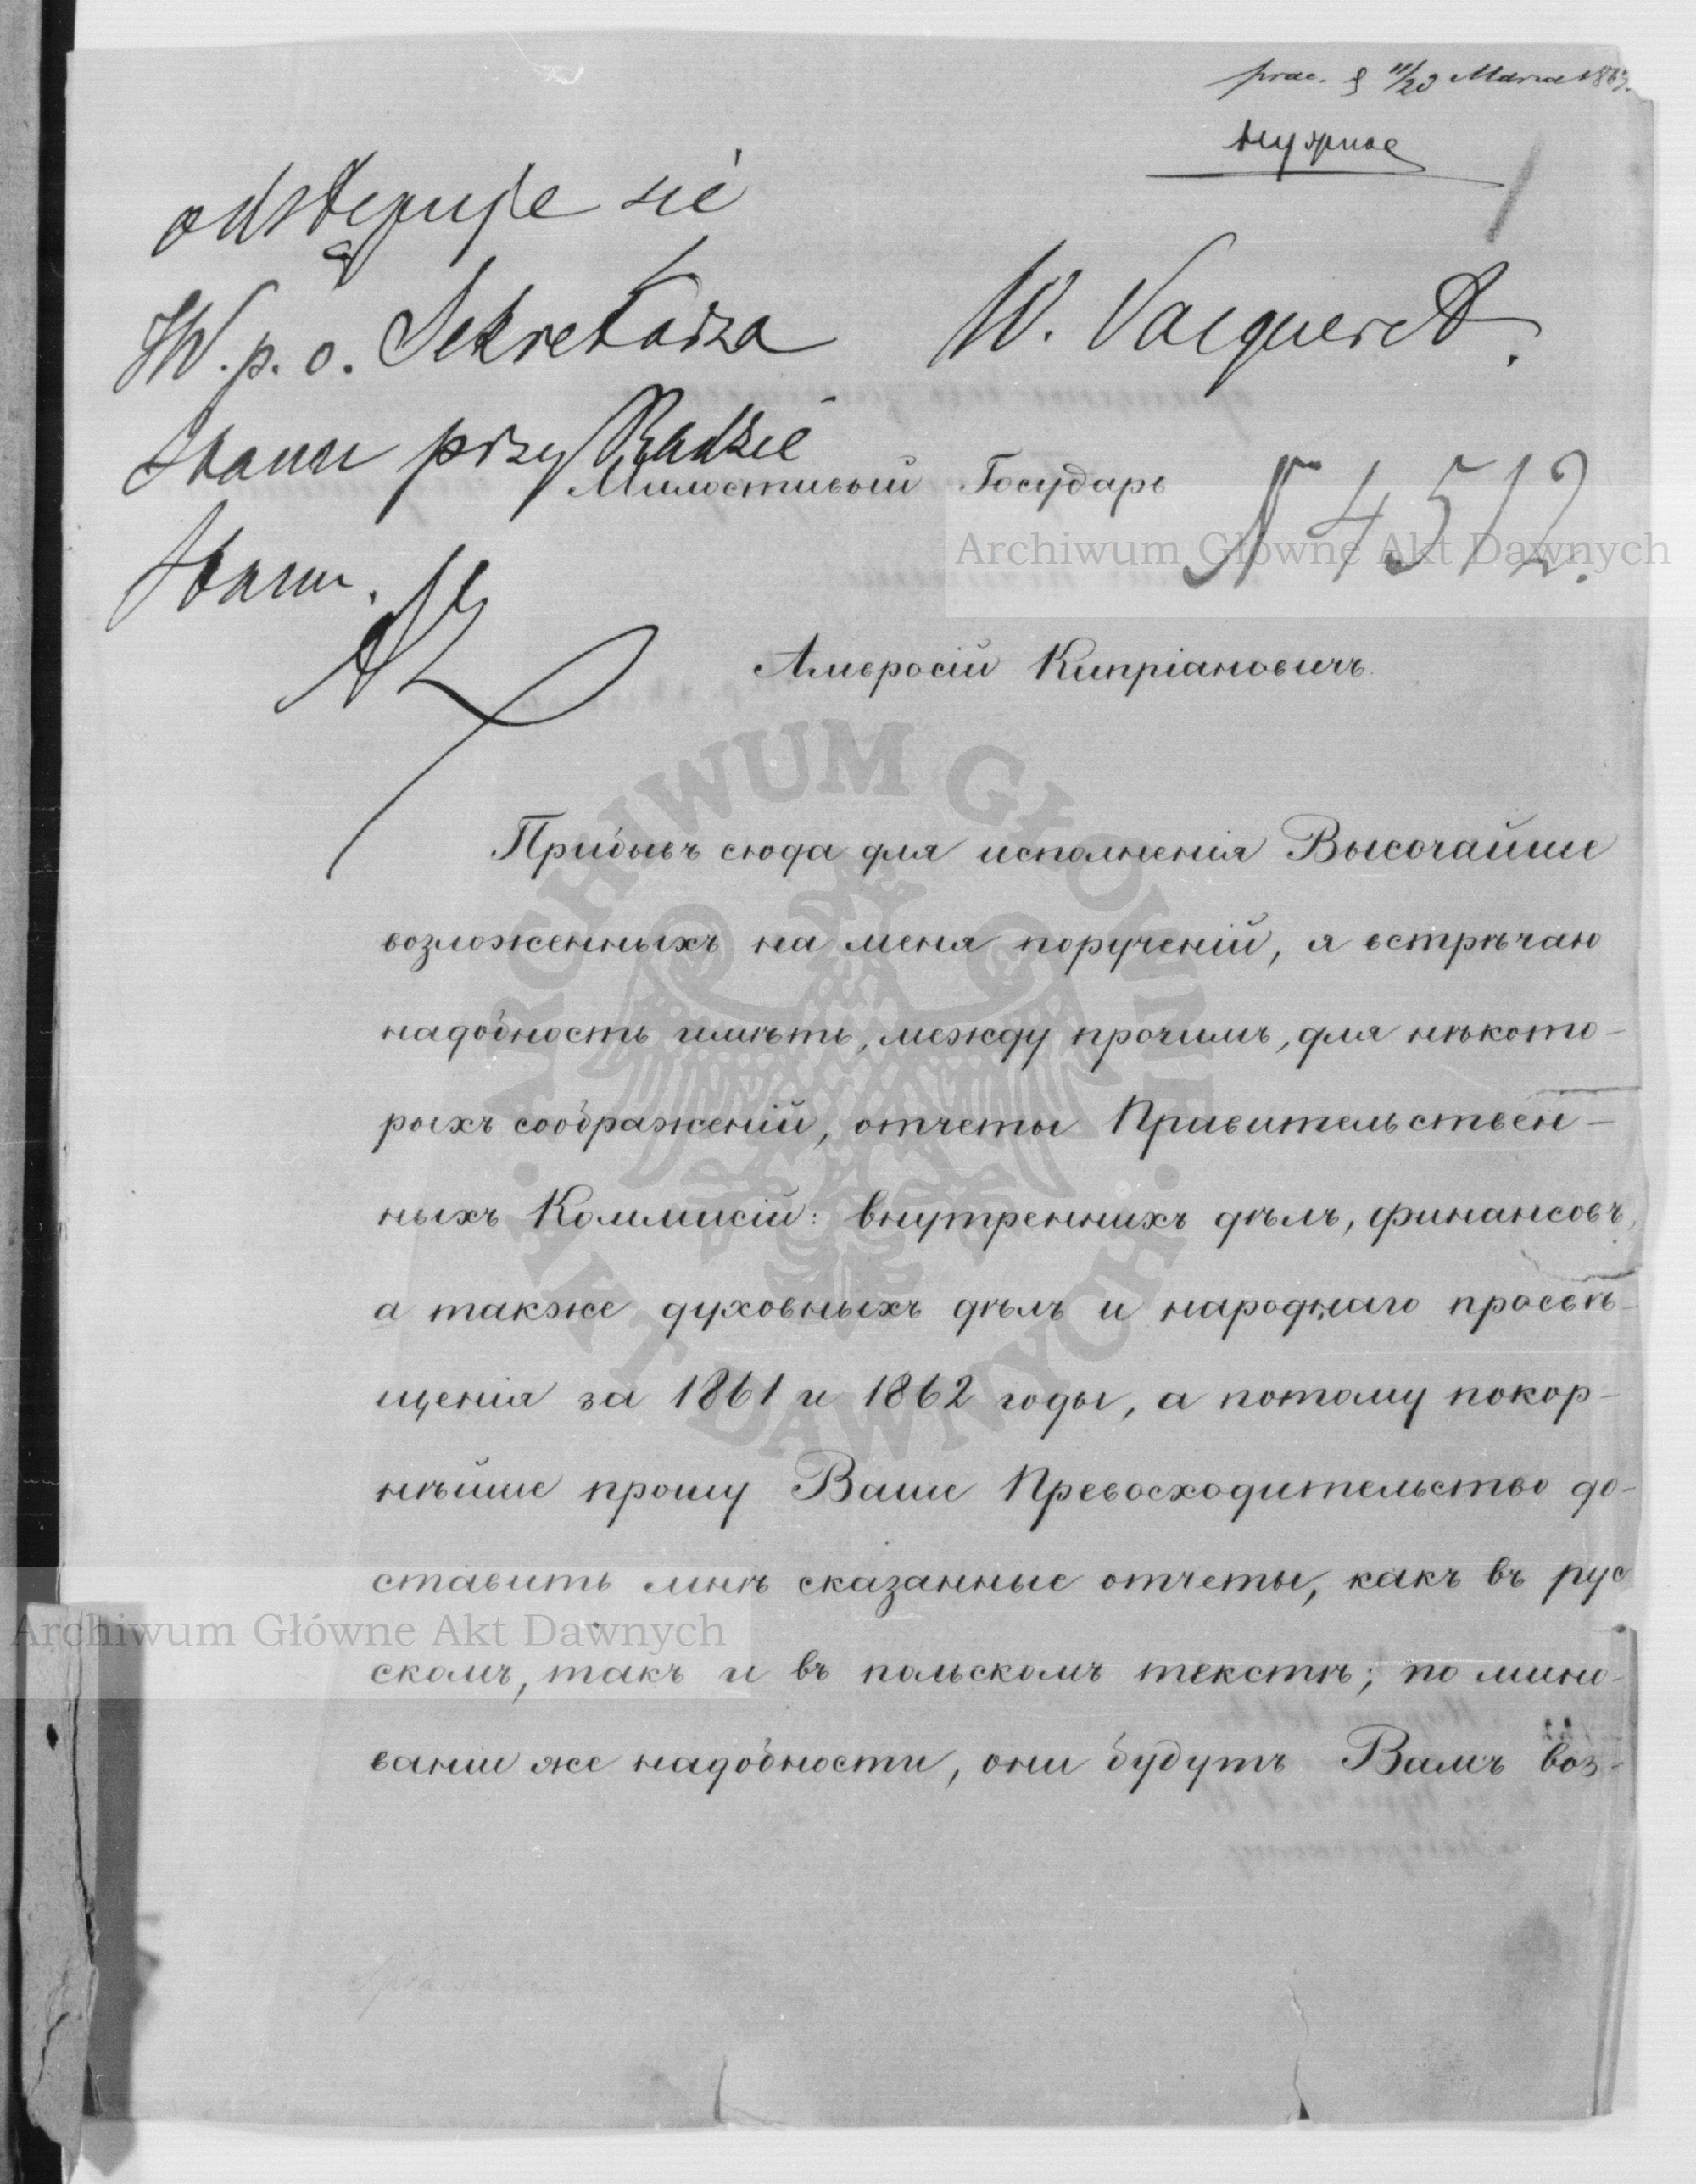 prae. d 11/23 Marca 1863.
нужное
odstępuje się
JW. p. o. Sekretarza
W. Vacqueret.
Stanu przy Radzie
Милостивый Государь
N 4512.
Stanu.
Амвросій Кипріановичъ.
Прибывъ сюда для исполненія Высочайше
возложенныхъ на меня порученій, я встрѣчаю
надобность имѣть, между прочимъ, для нѣкото-
рыхъ соображеній, отчеты Правительствен-
ныхъ Коммисій: внутреннихъ дѣлъ, финансовъ,
а также духовныхъ дѣлъ и народнаго просвѣ-
щенія за 1861 и 1862 годы, а потому покор-
нѣйше прошу Ваше Превосходительство до-
ставить мнѣ сказанные отчеты, какъ въ рус
скомъ, такъ и въ польскомъ текстѣ; по мино-
ваніи же надобности, они будутъ Вамъ воз-
Archiwum Główne Akt Dawnych
Archiwum Główne Akt Dawnych
ARCHIWUM GŁÓWNE · AKT DAWNYCH ·